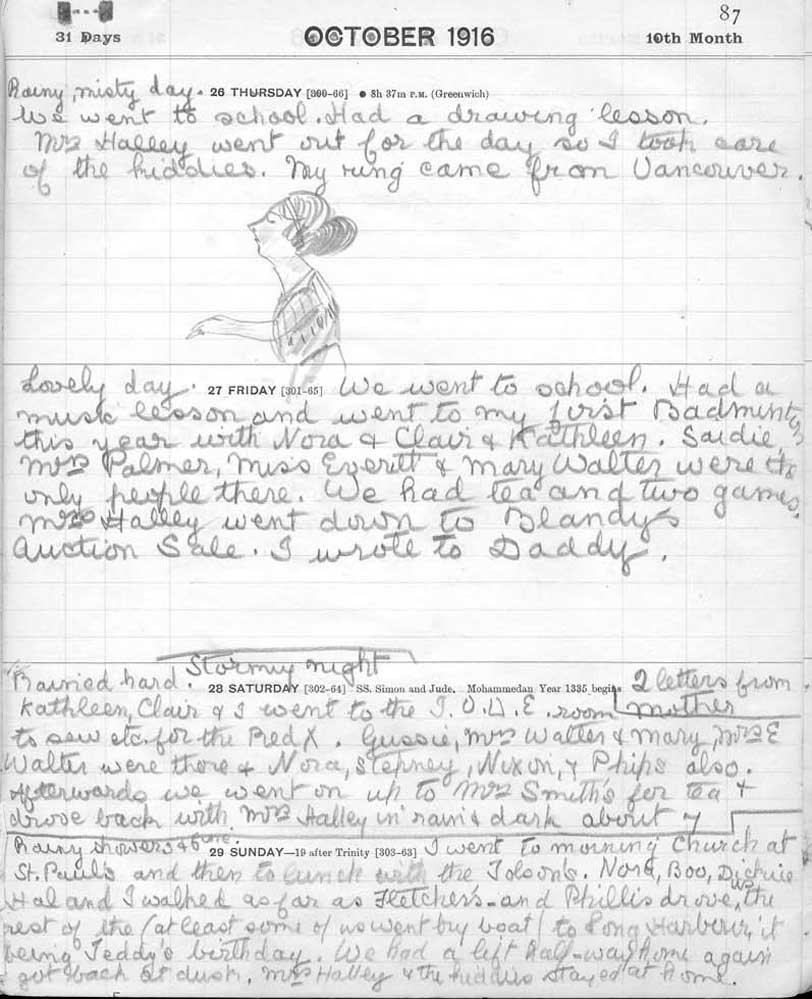 87
31 Days
OCTOBER 1916
10th Month
Rainy, misty day. 26 THURSDAY [300-66] ● 8h 37m P.M. (Greenwich)
We went to school. Had a drawing lesson.
Mrs Halley went out for the day so I took care
of the kiddies. My ring came from Vancouver.
Lovely day. 27 FRIDAY [301-65] We went to school. Had a
music lesson and went to my first Badminton
this year with Nora & Clair & Kathleen. Saidie,
Mrs Palmer, Miss Everitt & Mary Walter were the
only people there. We had tea and two games.
Mrs Halley went down to Blandys
Auction Sale. I wrote to Daddy.
Stormy night
Rained hard. 28 SATURDAY [302-64] SS. Simon and Jude. Mohammedan Year 1335 begins 2 letters from
Kathleen, Clair & I went to the I.O.D.E. room mother
to sew etc. for the Red X. Gussie, Mrs Walter & Mary, Mrs E
Walter were there & Nora, Stepney, Nixon, & Phips also.
Afterwards we went on up to Mrs Smith's for tea &
drove back with Mrs Halley in rain & dark about 7
Rainy showers & 29 SUNDAY—19 after Trinity [303-63] I went to morning Church at
St. Paul's and then to lunch with the Tolson's. Nora, Boo, Dickie
Hal and I walked as far as Fletcher's and Phillis drove, the
rest of the (at least some of us went by boat) to Long Harbour, it
being Teddy's birthday. We had a lift half-way home again
got back at dusk. Mrs Halley & the kiddies stayed at home.